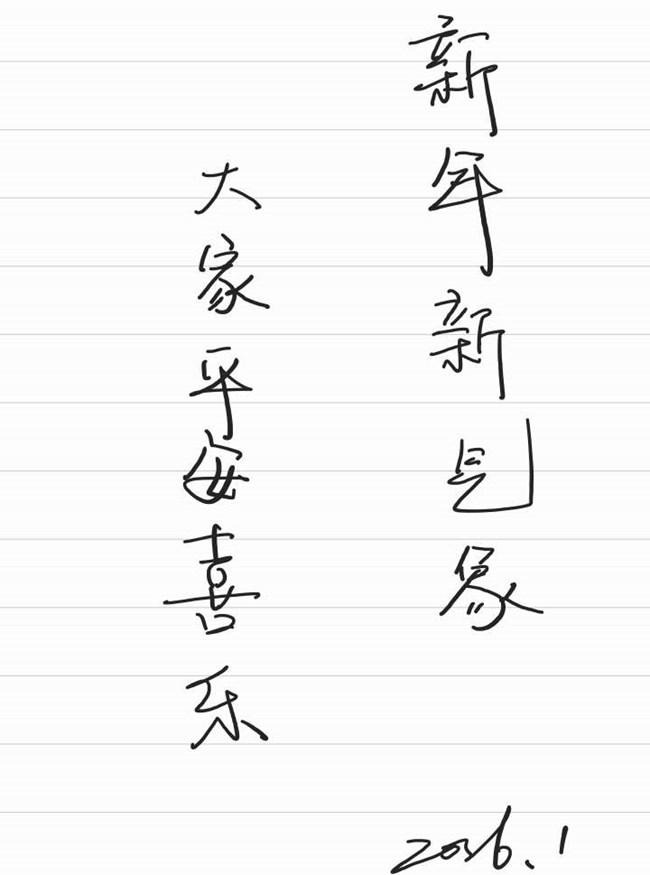 新年新气象
大家平安喜乐
2026.1